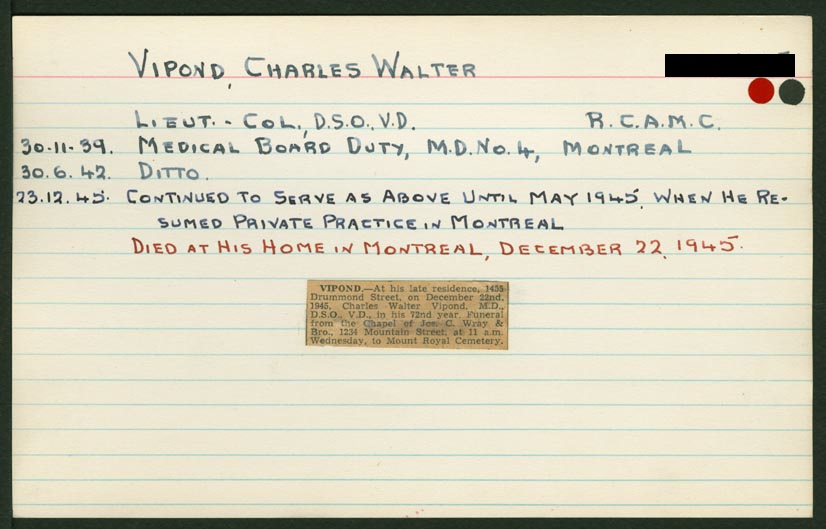 VIPOND, CHARLES WALTER
LIEUT.-COL., D.S.O., V.D. R.C.A.M.C.
30-11-39. MEDICAL BOARD DUTY, M.D. NO. 4, MONTREAL
30.6.42. DITTO.
23.12.45. CONTINUED TO SERVE AS ABOVE UNTIL MAY 1945, WHEN HE RE-
SUMED PRIVATE PRACTICE IN MONTREAL
DIED AT HIS HOME IN MONTREAL, DECEMBER 22, 1945.
VIPOND.—At his late residence, 1455
Drummond Street, on December 22nd,
1945, Charles Walter Vipond, M.D.,
D.S.O., V.D., in his 72nd year. Funeral
from the Chapel of Jos. C. Wray &
Bro., 1234 Mountain Street, at 11 a.m.
Wednesday, to Mount Royal Cemetery.